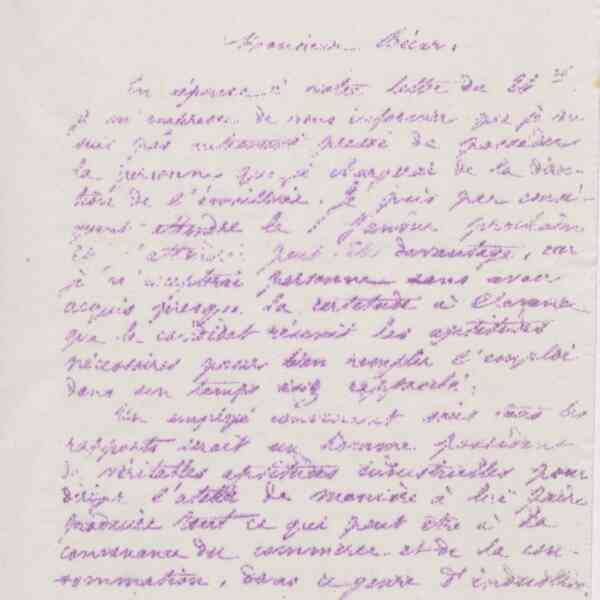 Monsieur Bécar,
En réponse à votre lettre du 28
je m'empresse de vous informer que je ne
suis pas autrement pressé de posséder
la personne que je chargerai de la direc-
tion de l'émaillerie. Je puis par consé-
quent attendre le 1 Janvier prochain
et attendrai peut être davantage, car
je n'accepterai personne sans avoir
acquis presque la certitude à l'avance
que le candidat réunit les aptitudes
nécessaires pour bien remplir l'emploi
dans un temps rapproché.
Un employé convenant sous tous les
rapports serait un homme possédant
de véritables aptitudes industrielles pour
diriger l'atelier de manière à lui faire
produire tout ce qui peut être à la
convenance du commerce et de la con-
sommation, dans ce genre d'industrie.